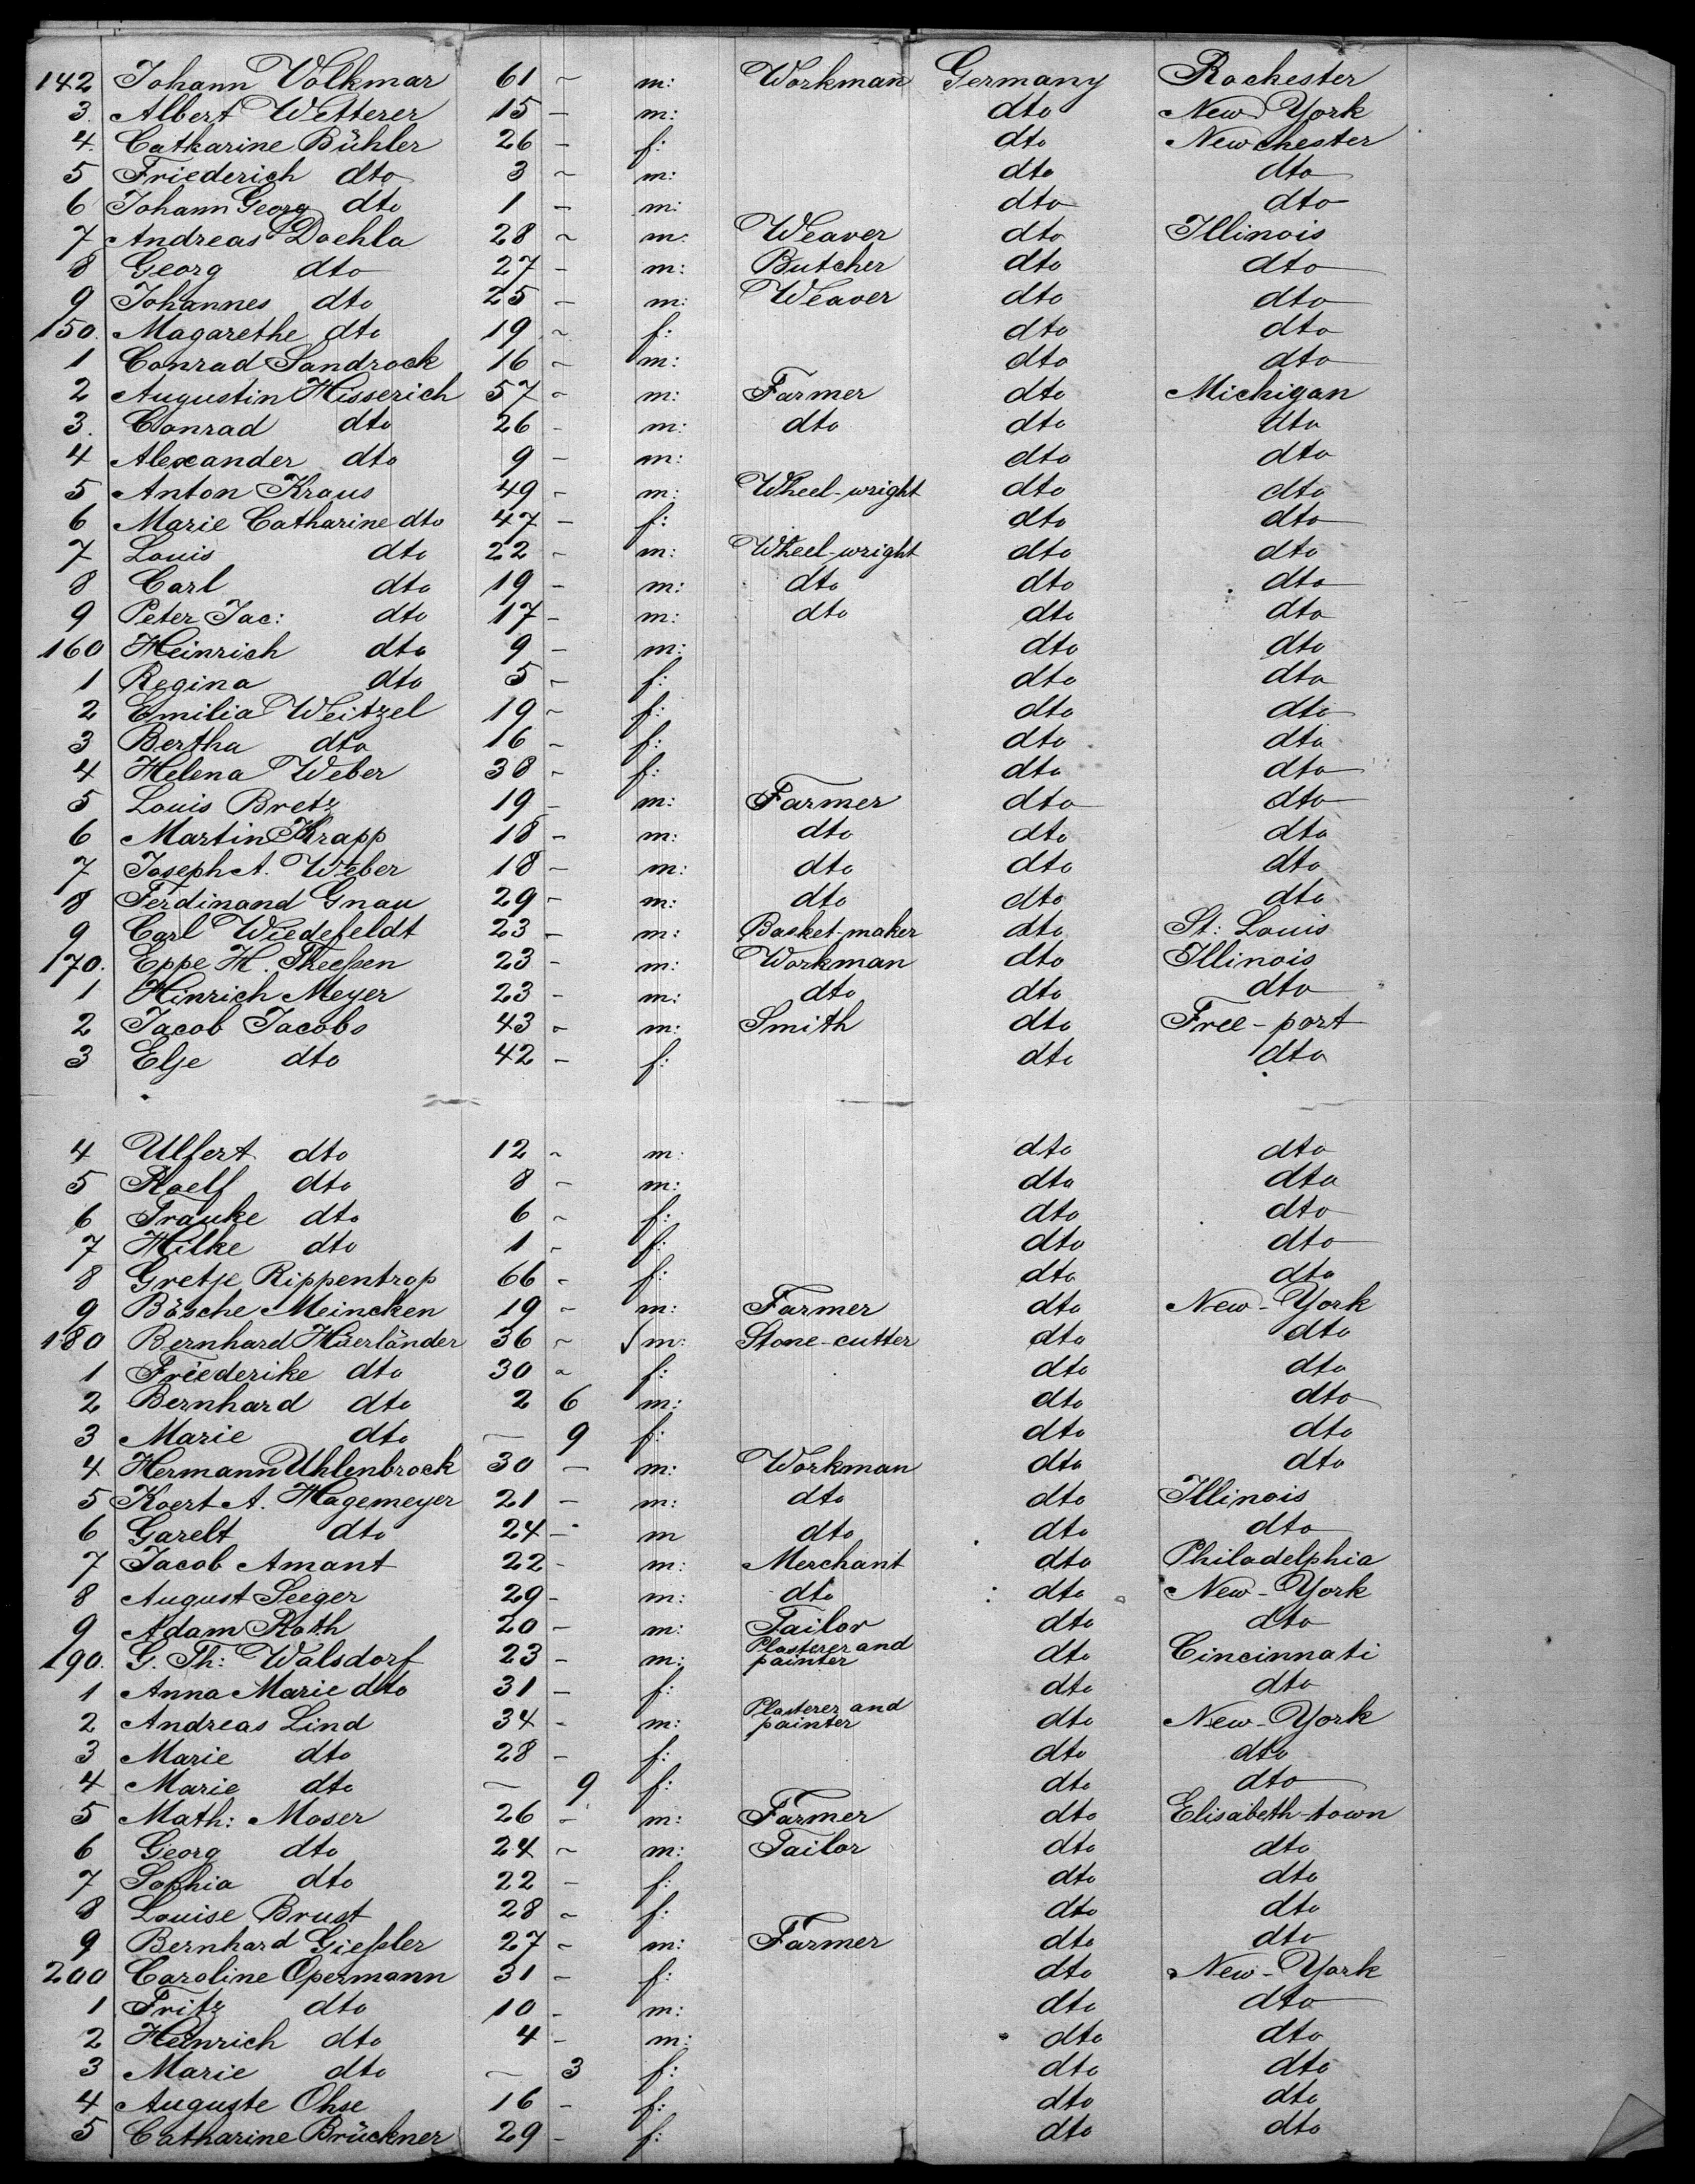 142 Johann Volkmar 61 ~ m: Workman Germany Rochester
3. Albert Wetterer 15 — m: dto New York
4. Catharine Bühler 26 — f: dto Newchester
5 Friederich dto 3 ~ m: dto dto
6 Johann Georg dto 1 — m: dto dto
7 Andreas Doehla 28 ~ m: Weaver dto Illinois
8 Georg dto 27 — m: Butcher dto dto
9 Johannes dto 25 — m: Weaver dto dto
150. Magarethe dto 19 ~ f: dto dto
1 Conrad Sandrock 16 ~ m: dto dto
2 Augustin Hisserich 57 ~ m: Farmer dto Michigan
3. Conrad dto 26 — m: dto dto dto
4 Alexander dto 9 — m: dto dto
5 Anton Kraus 49 — m: Wheel-wright dto dto
6 Marie Catharine dto 47 — f: dto dto
7 Louis dto 22 — m: Wheel-wright dto dto
8 Carl dto 19 — m: dto dto dto
9 Peter Jac: dto 17 — m: dto dto dto
160 Heinrich dto 9 — m: dto dto
1 Regina dto 5 — f: dto dto
2 Emilia Weitzel 19 ~ f: dto dto
3 Bertha dto 16 ~ f: dto dto
4 Helena Weber 38 ~ f: dto dto
5 Louis Bretz 19 — m: Farmer dto dto
6 Martin Krapp 18 — m: dto dto dto
7 Joseph A. Weber 18 — m: dto dto dto
8 Ferdinand Gnau 29 — m: dto dto dto
9 Carl Wiedefeldt 23 — m: Basket-maker dto St: Louis
170. Eppe H. Theeßen 23 — m: Workman dto Illinois
1 Hinrich Meyer 23 — m: dto dto dto
2 Jacob Jacobs 43 — m: Smith dto Free-port
3 Elje dto 42 — f: dto dto
4 Ulfert dto 12 ~ m: dto dto
5 Roelf dto 8 — m: dto dto
6 Frauke dto 6 ~ f: dto dto
7 Hilke dto 1 — f: dto dto
8 Gretje Rippentrop 66 — f: dto dto
9 Bösche Meincken 19 — m: Farmer dto New-York
180 Bernhard Hüerländer 36 ~ m: Stone-cutter dto dto
1 Friederike dto 30 ~ f: dto dto
2 Bernhard dto 2 6 m: dto dto
3 Marie dto — 9 f: dto dto
4 Hermann Uhlenbrock 30 — m: Workman dto dto
5 Koert A. Hagemeyer 21 — m: dto dto Illinois
6 Garelt dto 24 — m dto dto dto
7 Jacob Amant 22 — m: Merchant dto Philadelphia
8 August Seeger 29 — m: dto dto New-York
9 Adam Roth 20 — m: Tailor dto dto
190. G. Th: Walsdorf 23 — m: Plasterer and painter dto Cincinnati
1 Anna Marie dto 31 — f: dto dto
2 Andreas Lind 34 — m: Plasterer and painter dto New-York
3 Marie dto 28 — f: dto dto
4 Marie dto — 9 f: dto dto
5 Math: Moser 26 — m: Farmer dto Elisabeth-town
6 Georg dto 24 ~ m: Tailor dto dto
7 Sophia dto 22 — f: dto dto
8 Louise Brust 28 ~ f: dto dto
9 Bernhard Gießler 27 ~ m: Farmer dto dto
200 Caroline Opermann 31 — f: dto New-York
1 Fritz dto 10 — m: dto dto
2 Heinrich dto 4 — m: dto dto
3 Marie dto — 3 f: dto dto
4 Auguste Ohse 16 — f: dto dto
5 Catharine Brückner 29 — f: dto dto